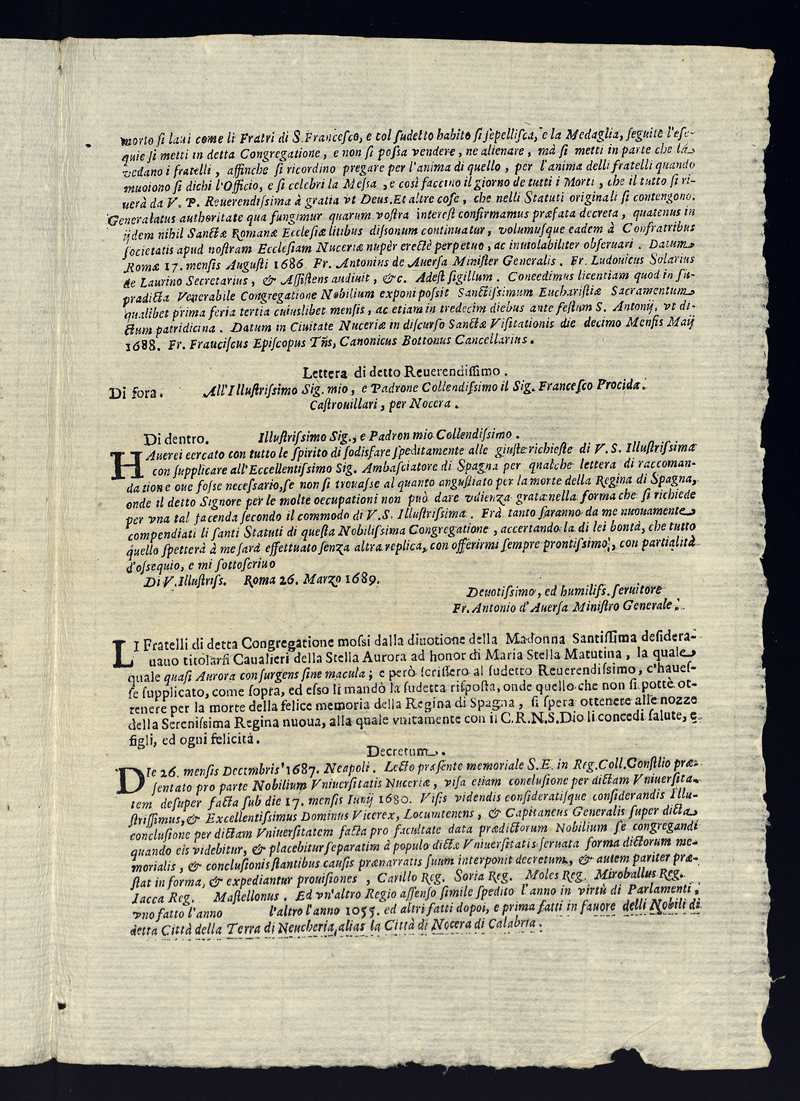 morto si laui come li Fratri di S. Francesco, e col sudetto habito si sepellisca, e la Medaglia, seguite l'ese-
quie si metti in detta Congregatione, e non si possa vendere, ne alienare, mà si metti in parte che la
vedano i fratelli, affinche si ricordino pregare per l'anima di quello, per l'anima delli fratelli quando
muoiono si dichi l'Officio, e si celebri la Messa, e così faccino il giorno de tutti i Morti, che il tutto si ri-
uerà da V. P. Reuerendissima à gratia vt Deus. Et altre cose, che nelli Statuti originali si contengono.
Generalatus authoritate qua fungimur quarum vostra interest confirmamus præfata decreta, quatenus in
ijdem nihil Sanctæ Romanæ Ecclesiæ litibus dissonum continuatur, volumusque eadem à Confratribus
societatis apud nostram Ecclesiam Nuceriæ nupèr erectè perpetuo, ac inuiolabiliter obseruari. Datum
Romæ 17. mensis Augusti 1686 Fr. Antonius de Auersa Minister Generalis. Fr. Ludouicus Solarius
de Laurino Secretarius, & Assistens audiuit, &c. Adest sigillum. Coneedimus licentiam quod in su-
pradicta Venerabile Congregatione Nobilium exponi possit Sanctissimum Eucharistiæ Sacramentum
qualibet prima feria tertia cuiuslibet mensis, ac etiam in tredecim diebus ante festum S. Antonij, vt di-
ctum patridicina. Datum in Ciuitate Nuceriæ in discurso Sanctæ Visitationis die decimo Mensis Maij
1688. Fr. Frauciscus Episcopus Tñs, Canonicus Bottonus Cancellarius.
Lettera di detto Reuerendissimo.
Di fora. All'Illustrissimo Sig. mio, e Padrone Collendissimo il Sig. Francesco Procida.
Castrouillari, per Nocera.
Di dentro. Illustrissimo Sig., e Padron mio Collendissimo.
HAuerei eercato con tutto le spirito di sodisfare speditamente alle giuste richieste di V. S. Illustrissima
con supplicare all'Eccellentissimo Sig. Ambasciatore di Spagna per qualche lettera di raccoman-
datione oue fosse necessario, se non si trouasse al quanto angustiato per la morte della Regina di Spagna,
onde il detto Signore per le molte occupationi non può dare vdienza grata nella forma che si richiede
per vna tal facenda secondo il commodo di V. S. Illustrissima. Frà tanto saranno da me nuouamente
compendiati li santi Statuti di questa Nobilissima Congregatione, accertando la di lei bontà, che tutto
quello spetterà à me sarà effettuato senza altra replica, con offerirmi sempre prontissimo, con partialità
d'ossequio, e mi sottoscriuo
Di V. Illustriss. Roma 26. Marzo 1689.
Deuotissimo, ed humiliss. seruitore
Fr. Antonio d'Auersa Ministro Generale.
LI Fratelli di detta Congregatione mossi dalla diuotione della Madonna Santissima desidera-
uauo titolarsi Caualieri della Stella Aurora ad honor di Maria Stella Matutina, la quale
quale quasi Aurora consurgens sine macula; e però scrissero al sudetto Reuerendissimo, c'haues-
se supplicato, come sopra, ed esso li mandò la sudetta risposta, onde quello che non si pottè ot-
tenere per la morte della felice memoria della Regina di Spagna, si spera ottenere alle nozze
della Serenissima Regina nuoua, alla quale vnitamente con il C.R.N.S. Dio li concedi salute, e
figli, ed ogni felicità.
Decretum.
DIe 26. mensis Decembris 1687. Neapoli. Lecto præsente memoriale S.E. in Reg. Coll. Consilio præ-
sentato pro parte Nobilium Vniuersitatis Nuceriæ, visa etiam conclusione per dictam Vniuersita-
tem desuper facta sub die 17. mensis Iunij 1680. Visis videndis consideratisque considerandis Illu-
strissimus, & Excellentissimus Dominus Vicerex, Locumtenens, & Capitaneus Generalis super dicta
conclusione per dictam Vniuersitatem facta pro facultate data prædictorum Nobilium se congregandi
quando eis videbitur, & placebitur separatim à populo dictæ Vniuersitatis seruata forma dictorum me-
morialis, & conclusionis stantibus causis prænarratis suum interponit decretum, & autem pariter præ-
stat in forma, & expediantur prouisiones, Carillo Reg. Soria Reg. Moles Reg. Miroballus Reg.
Iacca Reg. Mastellonus. Ed vn'altro Regio assenso simile spedito l'anno in virtù di Parlamenti,
vno fatto l'anno l'altro l'anno 1055. ed altri fatti dopoi, e prima fatti in fauore delli Nobili di
detta Città della Terra di Neucheria, alias la Città di Nocera di Calabria.